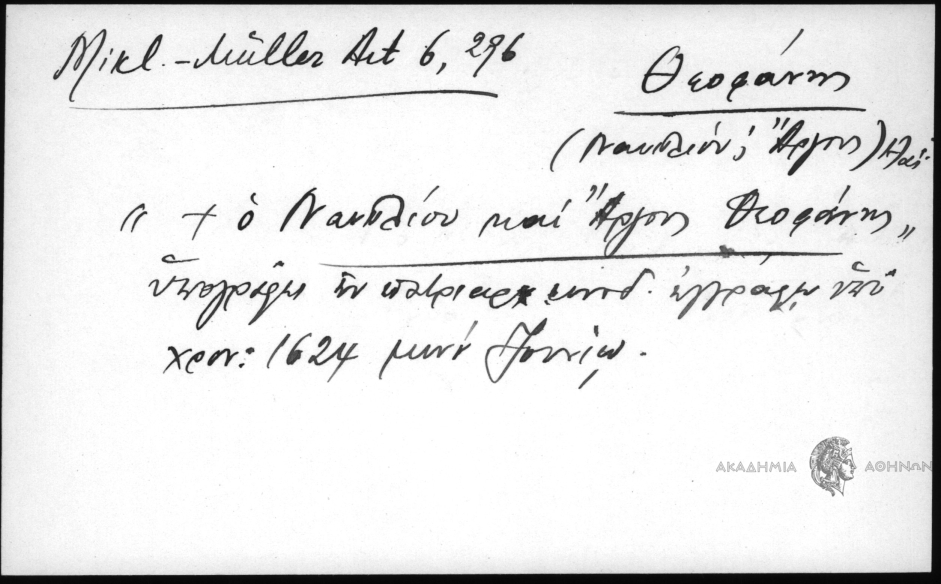 Mikl. - Müller Act 6, 296
Θεοφάνης
(Ναυπλίου; Ἄργους)
" + ὁ Ναυπλίου καὶ Ἄργους Θεοφάνης "
ὑπογράφει ἐν πατριαρχ συνοδ. ἐγγράφῳ ὑπὸ
χρον: 1624 μηνὶ Ἰουνίῳ.
ΑΚΑΔΗΜΙΑ ΑΘΗΝΩΝ